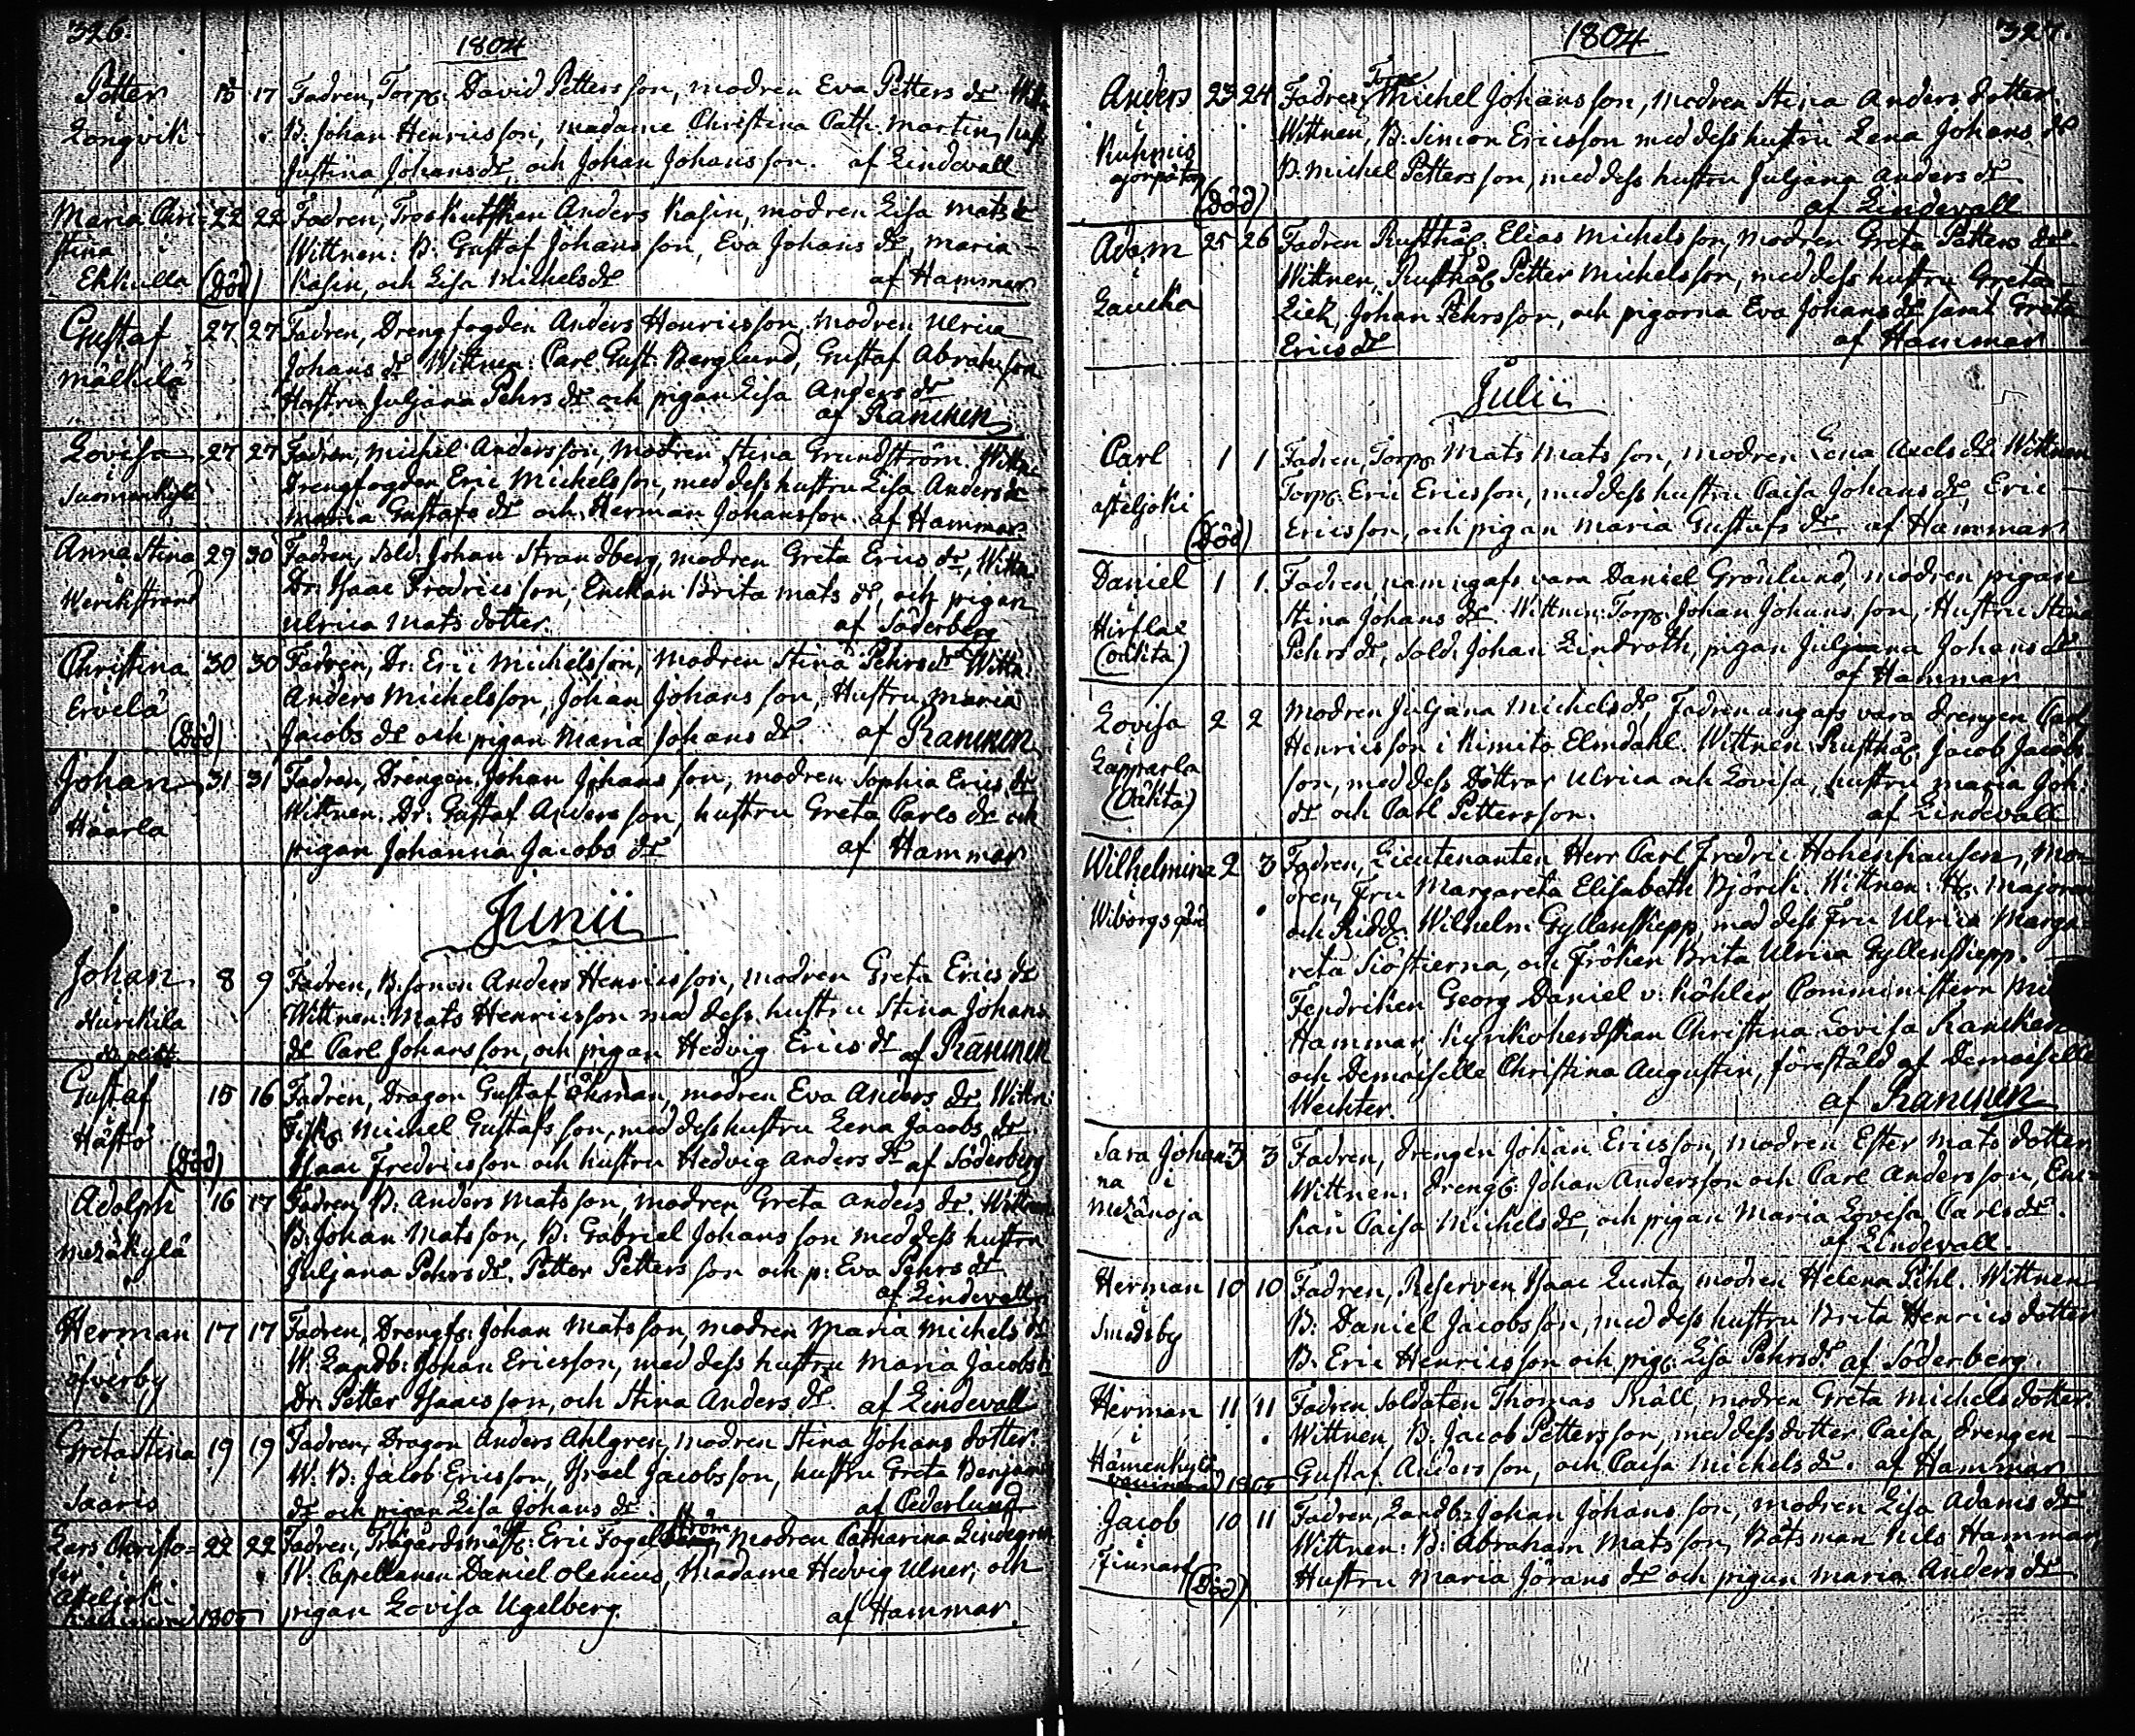 326.
1804
Petter 15 17 Fadren, Torp: David Petters son, modren Eva Petters dr Wittn
Longvik B: Johan Henricsson, madame Christina Cath. Martin, hust
Justina Johansdr, och Johan Johans son. af Lindevall
Maria Chri- 22 22 Fadren, Anders Kasin, modren Lisa Mats dr
stina i Wittnen: B: Gustaf Johans son, Eva Johans dr, Maria
Ekkulla (död) Kasin, och Lisa Michelsdr af Hammar
Gustaf 27 27 Fadren, Drengfogden Anders Henricsson, modren Ulrica
Mälkilä Johans dr Wittnen: Carl Gust: Berglund, Gustaf Abrahsson
Hustru Juljana Pehrs dr och pigan Lisa Anders dr
af Rancken
Lovisa 27 27 Fadren, Michel Andersson, Modren Stina Grundström. Wittn:
i Drengfogden Eric Michelsson, med dess hustru Lisa Anders dr
Maria Gustafs dr och Herman Johansson. af Hammar
Anna Stina 29 30 Fadren, Sold. Johan Strandberg, modren Greta Erics dr, Wittn:
i Dr: Isaac Fredrics son, Enckan Brita Mats dr, och pigan
Werikstrand Ulrica Mats dotter. af Söderberg
Christina 30 30 Fadren, Dr: Eric Michelsson, Modren Stina Pehrs dr Wittn:
Ervelä Anders Michelsson, Johan Johans son, Hustru Maria
(död) Jacobs dr och pigan Maria Johans dr. af Rancken
Johan 31 31 Fadren, Drengen Johan Johans son, modren Sophia Erics dr
i Wittnen: Dr: Gustaf Anders son, hustru Greta Carls dr och
Haarla pigan Johanna Jacobs dr af Hammar
Junii
Johan 8 9 Fadren, B: sonen Anders Henricsson, modren Greta Erics dr
i Wittnen: Mats Henricsson med dess hustru Stina Johans
dr Carl Johansson, och pigan Hedvig Erics dr af Rancken
Gustaf 15 16 Fadren, Dragon Gustaf Öhman, modren Eva Anders dr, Wittn:
Hästö Michel Gustafs son, med dess hustru Lena Jacobs dr
(död) Isaac Fredricsson och hustru Hedvig Anders dr af Söderberg
Adolph 16 17 Fadren, B: Anders Mats son, modren Greta Anders dr. Wittnen
Metzäkylä B: Johan Mats son, B: Gabriel Johans son med dess hustru
Juljana Pehrs dr. Petter Petters son och p: Eva Pehrs dr
af Lindevall
Herman 17 17 Fadren, Drengf: Johan Mats son, modren Maria Michels dr
i W: Landb: Johan Ericsson, med dess hustru Maria Jacobs dr
öfverby Dr. Petter Isaacsson, och Stina Anders dr. af Lindevall
Greta Stina 19 19 Fadren, Dragon Anders Ahlgren, modren Stina Johans dotter
i W: B: Jacob Ericsson, Israel Jacobsson, hustru Greta Benjam
Saaris dr och pigan Lisa Johans dr af Cederlund
Lars Christo- 22 22 Fadren, Trägårdsmäst: Eric Fogelström, Modren Catharina Lindegren
fer i W: Capellanen Daniel Olenius, Madame Hedvig Ulner, och
Asteljoki 1805 pigan Lovisa Ugelberg. af Hammar.
1804 327.
Anders 23 24 Fadren, Torp Michel Johansson, modren Stina Anders dotter.
i Wittnen, B: Simon Ericsson med dess hustru Lena Johans dr
Kuhmis B. Michel Petters son, med dess hustru Juljana Anders dr
(död) af Lindevall
Adam 25 26 Fadren Rusthåll: Elias Michels son, Modren Greta Petters dr
i Wittnen, Rusthåll Petter Michelsson, med dess hustru Greta
Laucka Johan Pehrsson, och pigorna Eva Johans dr samt Greta
Erics dr af Hammar
Julii
Carl 1 1 Fadren, Torp. Mats Mats son, modren Lena Axels dr. Wittnen
i Torp: Eric Ericsson, med dess hustru Caisa Johans dr, Eric
asteljoki (Död) Ericsson, och pigan Maria Gustafs dr af Hammar
Daniel 1 1 Fadren namngafs vara Daniel Grönlund, modren pigan
i Stina Johans dr. Wittnen: Torp: Johan Johans son, Hustru Stina
(oäkta) Pehrs dr, Sold: Johan Lindroth, pigan Juljana Johans dr
af Hammar
Lovisa 2 2 Modren Juljana Michels dr, Fadren angafs vara drengen Carl
i Henricsson i Kimito Elmdahl. Wittnen: Rusthåll Jacob Jacobs
Lapparla son, med dess Döttrar Ulrica och Lovisa, hustru Maria Joh:
(Oäkta) dr och Carl Pettersson. af Lindevall
Wilhelmina 2 3 Fadren, Lieutenanten Herr Carl Fredric Hohenhausen, Mo-
i dren, Fru Margareta Elisabeth Björck. Wittnen: H: Majoren
Wiborgsgård och Ridd: Wilhelm Gyllenskepp, med dess Fru Ulrica Marga
reta Siöstierna, och Fröken Brita Ulrica Gyllenskepp.
Fendriken Georg Daniel v: Köhler, Comministern
Hammar, kyrkoherdskan Christina Lovisa Rancken
och Demoiselle Christina Augustin, förestäld af Demoiselle
Wechter. af Rancken
Sara Johan 3 3 Fadren, drengen Johan Ericsson, modren Ester Mats dotter
na i Wittnen: drengf: Johan Andersson och Carl Andersson, Enc-
Metzänoja kan Caisa Michels dr, och pigan Maria Lovisa Carls dr.
af Lindevall.
Herman 10 10 Fadren, Reserven Isaac Lunta, modren Helena Pihl. Wittnen
i B: Daniel Jacobsson, med dess hustru Brita Henrics dotter
Smedsby B: Eric Henricsson och pig: Lisa Pehrs dr af Söderberg.
Herman 11 11 Fadren Soldaten Thomas Snäll, modren Greta Michels dotter.
i Wittnen, B: Jacob Petters son, med dess dotter Caisa, drengen
Hämenkylä Gustaf Anders son, och Caisa Michels dr. af Hammar
Jacob 10 11 Fadren, Landb: Johan Johans son, modren Lisa Adams dr
i Wittnen: B: Abraham Mats son, Båtsman Nils Hammar,
Finnari (Död) Hustru Maria Jörans dr och pigan Maria Anders dr